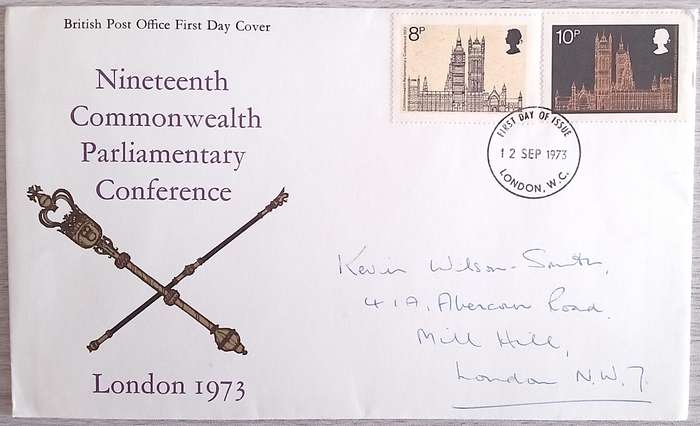 British Post Office First Day Cover
Nineteenth
Commonwealth
Parliamentary
Conference
London 1973
8P
10P
FIRST DAY OF ISSUE
12 SEP 1973
LONDON, W.C.
Kevin Wilson-Smith,
41A, Abercorn Road.
Mill Hill,
London N.W.7.